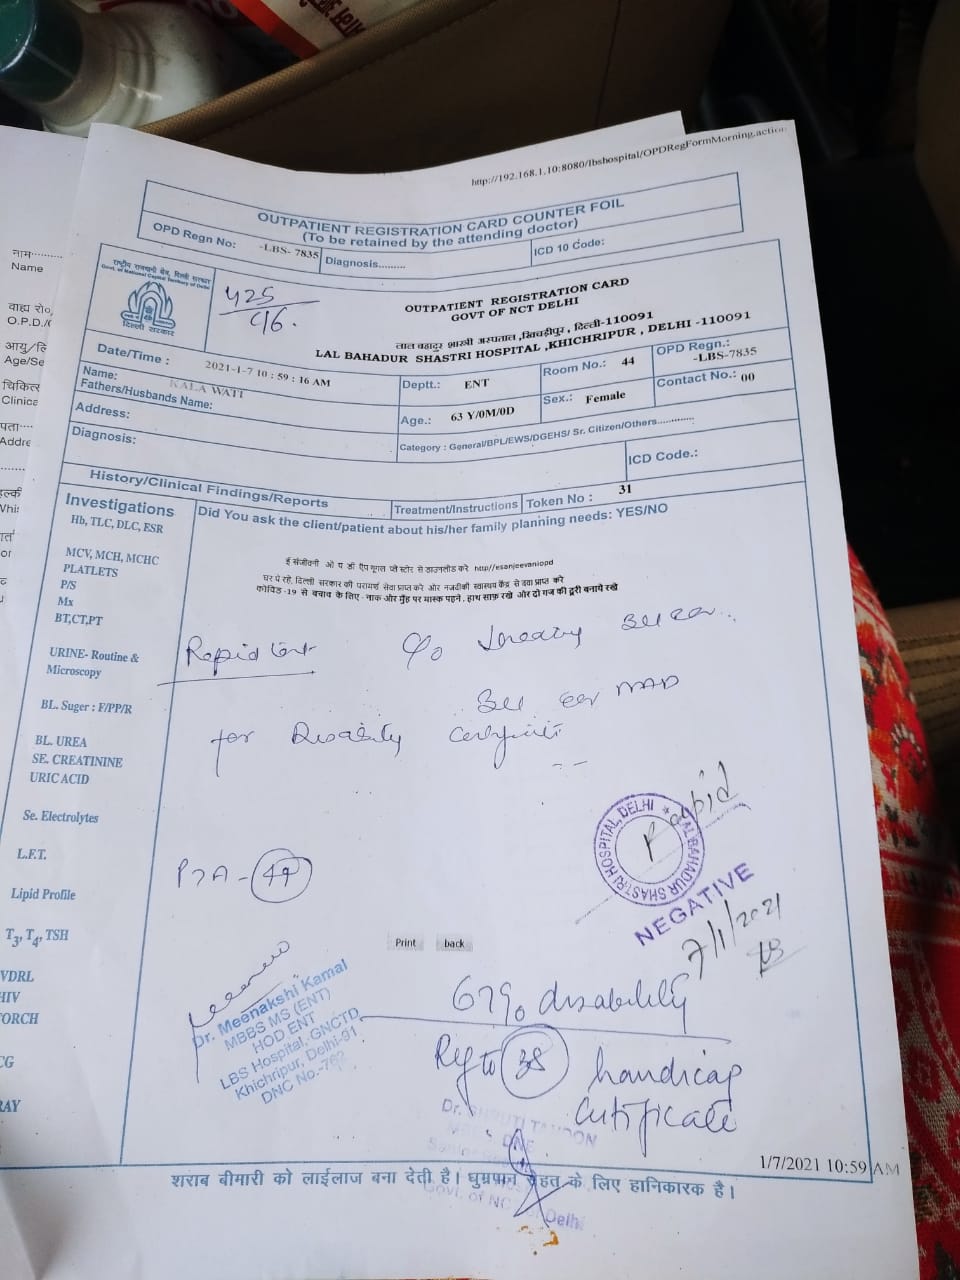 http://192.168.1.10:8080/lbshospital/OPDRegFormMorning.action
OUTPATIENT REGISTRATION CARD COUNTER FOIL
(To be retained by the attending doctor)
OPD Regn No: -LBS- 7835 Diagnosis......... ICD 10 Code:
राष्ट्रीय राजधानी क्षेत्र, दिल्ली सरकार
Govt. of National Capital Territory of Delhi
दिल्ली सरकार
425/46.
OUTPATIENT REGISTRATION CARD
GOVT OF NCT DELHI
लाल बहादुर शास्त्री अस्पताल , खिचड़ीपुर , दिल्ली-110091
LAL BAHADUR SHASTRI HOSPITAL ,KHICHRIPUR , DELHI -110091
Date/Time : 2021-1-7 10 : 59 : 16 AM Deptt.: ENT Room No.: 44 OPD Regn.: -LBS-7835
Name: KALA WATI
Fathers/Husbands Name: Age.: 63 Y/0M/0D Sex.: Female Contact No.: 00
Address: Category : General/BPL/EWS/DGEHS/ Sr. Citizen/Others.............
Diagnosis: ICD Code.:
History/Clinical Findings/Reports Treatment/Instructions Token No : 31
Investigations Did You ask the client/patient about his/her family planning needs: YES/NO
Hb, TLC, DLC, ESR
MCV, MCH, MCHC
PLATELETS
P/S
Mx
BT,CT,PT
URINE- Routine &
Microscopy
BL. Suger : F/PP/R
BL. UREA
SE. CREATININE
URIC ACID
Se. Electrolytes
L.F.T.
Lipid Profile
T3, T4, TSH
VDRL
HIV
TORCH
CG
RAY
ई संजीवनी ओ प डी ऐप गूगल प्ले स्टोर से डाउनलोड करे http//esanjeevaniopd
घर पे रहे, दिल्ली सरकार की परामर्श सेवा प्राप्त करे और नजदीकी स्वास्थ्य केंद्र से दवा प्राप्त करे
कोविड -19 से बचाव के लिए - नाक और मुँह पर मास्क पहने , हाथ साफ़ रखे और दो गज की दूरी बनाये रखे
Rapid C/o
for Disability certificate
LAL BAHADUR SHASTRI HOSPITAL, DELHI
Rapid
NEGATIVE
7/1/2021
PTA -
Print back
Dr. Meenakshi Kamal
MBBS MS (ENT)
HOD ENT
LBS Hospital, GNCTD
Khichripur, Delhi-91
DNC No.-
67% disability
38 handicap
certificate
Dr. TANDON
DNB
Govt. of NCT of Delhi
1/7/2021 10:59 AM
शराब बीमारी को लाईलाज बना देती है। धुम्रपान सेहत के लिए हानिकारक है।
नाम
Name
वाह्य रो०
O.P.D./
आयु/लि
Age/Se
चिकित्स
Clinica
पता
Addre